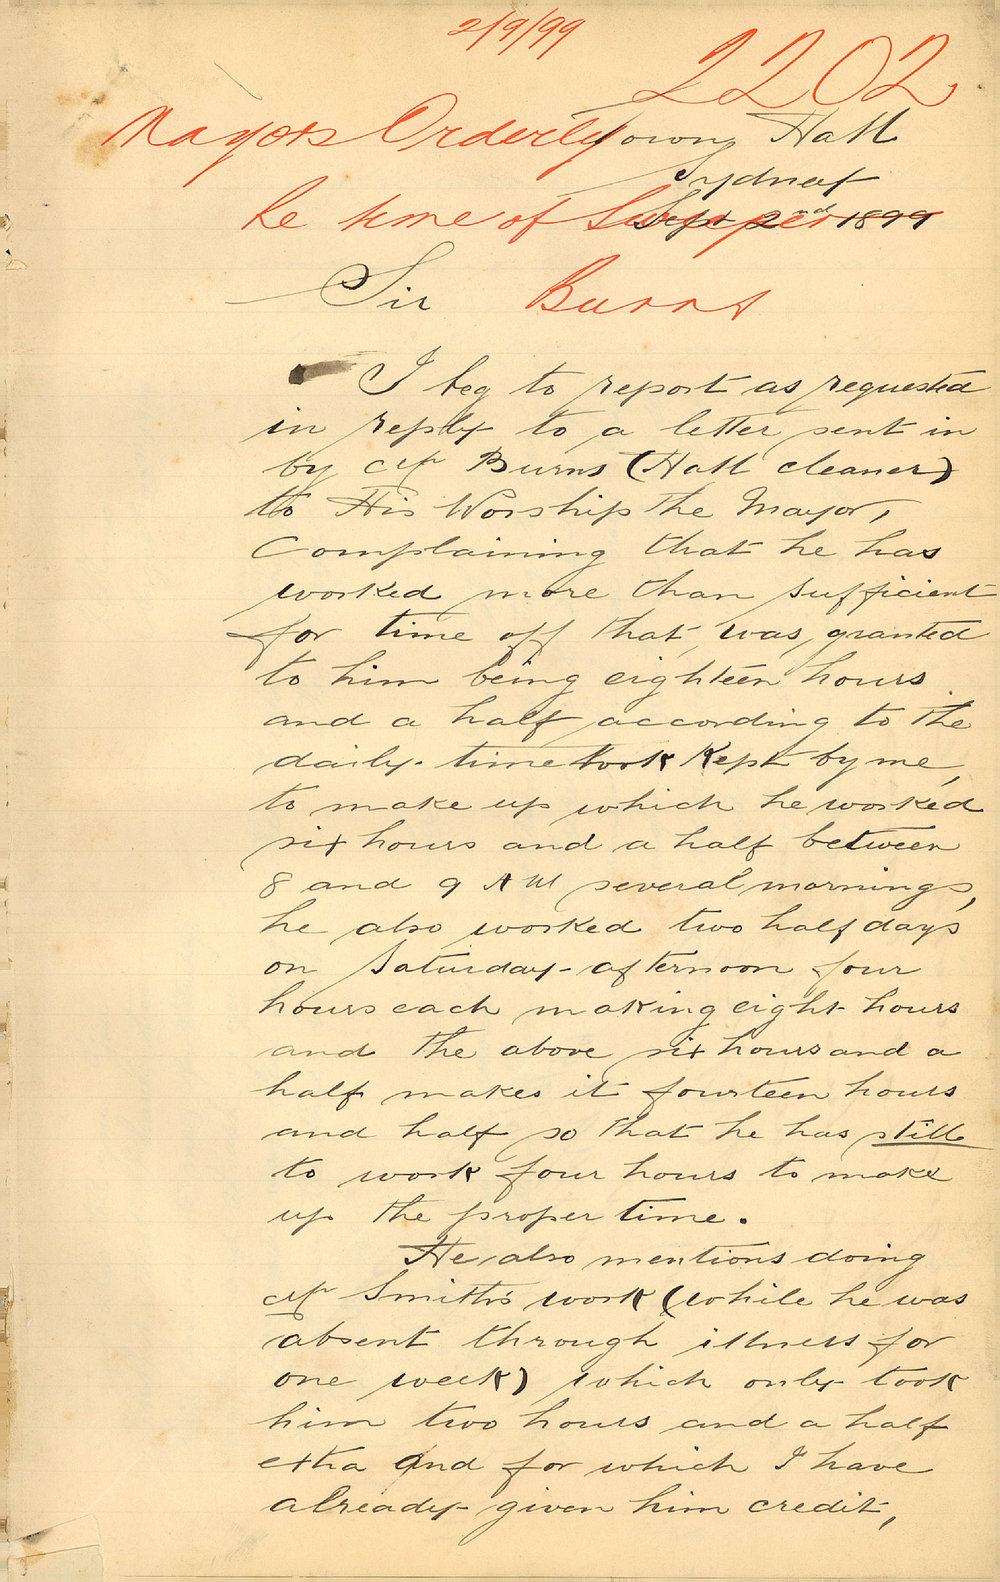 2/9/99
2202
Mayors Orderly
Town Hall
Sydney
Re time of Sweeper
Sept 2nd 1899
Sir
Burns
I beg to report as requested
in reply to a letter sent in
by Mr Burns (Hall cleaner)
to His Worship the Mayor,
Complaining that he has
worked more than sufficient
for time off that, was, granted
to him being eighteen hours
and a half according to the
daily time book kept by me,
to make up which he worked
six hours and a half between
8 and 9 AM several mornings,
he also worked two half days
on Saturday afternoon four
hours each making eight hours
and the above six hours and a
half makes it fourteen hours
and half so that he has still
to work four hours to make
up the proper time.
He also mentions doing
Mr Smith's work (while he was
absent through illness for
one week) which only took
him two hours and a half
extra and for which I have
already given him credit,